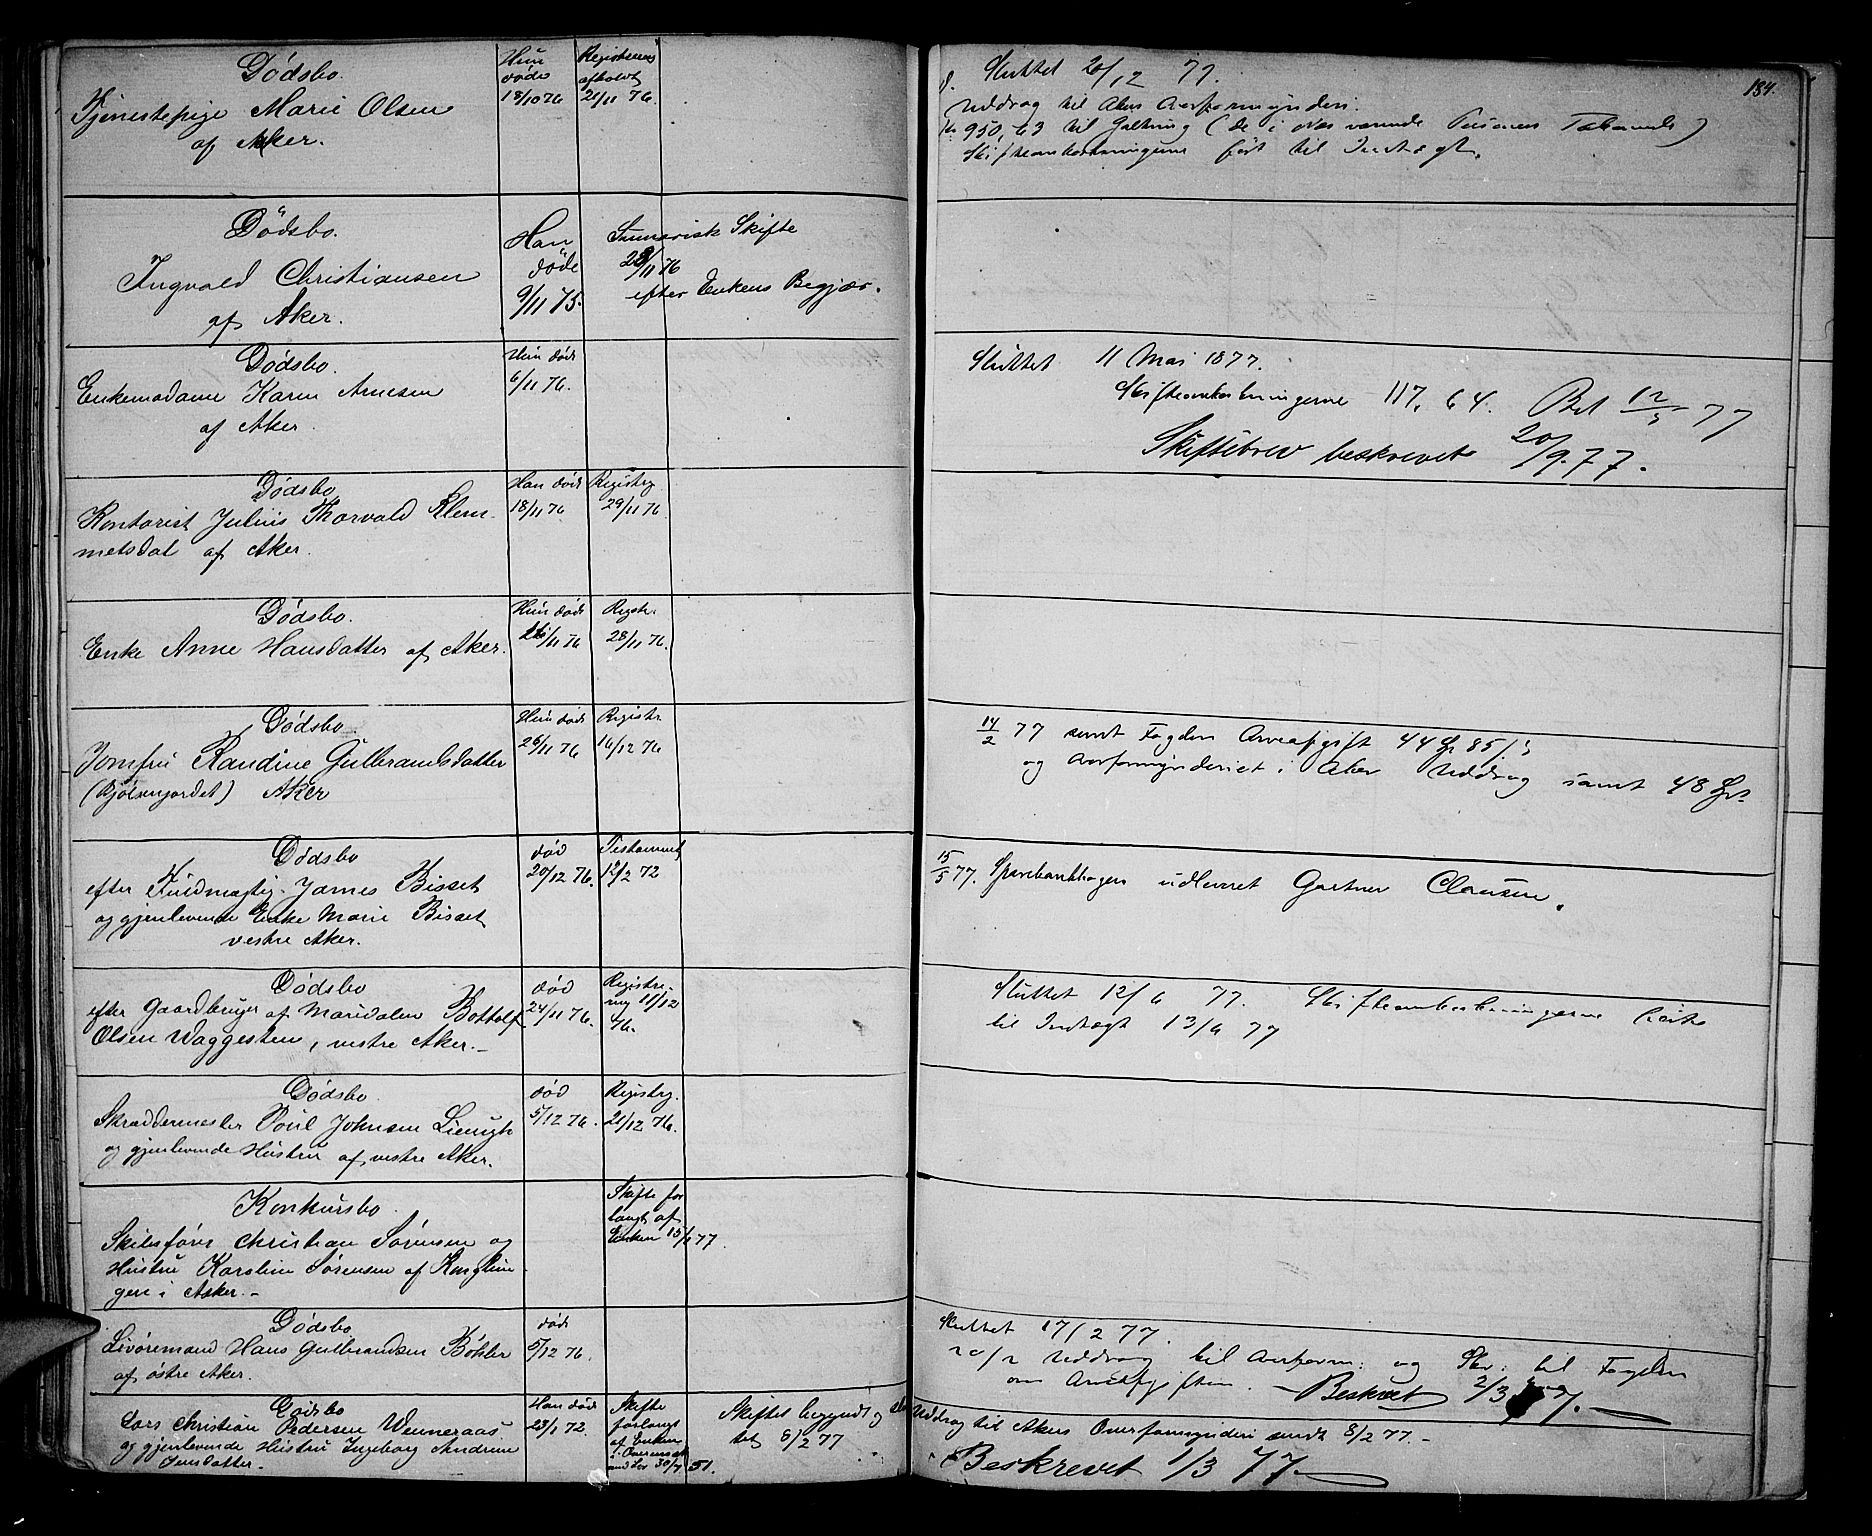 Dødsbo.
Tjenestepige Marie Olsen
af Aker.
Hun
døde
18/10 76
Registrering
afholdt
21/11 76.
Sluttet 20/12 77.
184.
Uddrag til Akers Overformynderi.
950,63 til
Skifteomkostningerne ført til Indtægt.
Dødsbo.
Ingvald Christiansen
af Aker.
Han
døde
9/11 75.
Summarisk Skifte
28/11 76
efter Enkens Begjær.
Dødsbo.
Enkemadame Karen Arnesen
af Aker.
Hun døde
6/11 76.
Sluttet 11 Mai 1877.
Skifteomkostningerne 117,64. Bet 12/5 77
Skiftebrev beskrevet 20/9.77.
Dødsbo
Kontorist Julius Thorvald Klem-
metsdal af Aker.
Han døde
18/11 76
Registrg
29/11 76
Dødsbo.
Enke Anne Hansdatter af Aker.
Hun døde
/11 76
Registr.
28/11 76.
Dødsbo.
Jomfru Randine Gulbrandsdatter
(Bjølsenjordet) Aker
Hun døde
26/11 76
Registr
16/12 76
14/2 77 sendt Fogden Arveafgift 44 85
og Overformynderiet i Aker Uddrag samt 48
Dødsbo
efter Fuldmægtig James Bisset
og gjenlevende Enke Marie Bisset
vestre Aker.
død
20/12 76.
Testament
12/2 72
15/5 77. Sparebankbogen udleveret Gartner Clausen.
Dødsbo
efter Gaardbruger af Maridalen Bottolf
Olsen Waggesten, vestre Aker.-
død
24/11 76.
Registre-
ring 11/12
76.
Sluttet 12/6 77. Skifteomkostningerne
til Indtægt 13/6 77
Dødsbo.
Skræddermester Poul Johnsen
og gjenlevende Hustru af vestre Aker.
død
5/12 76.
Registrg.
21/12 76.
Konkursbo
Skibsfører Christian Sørensen og
Hustru Karoline Sørensen af
geri i Asker.-
Skifte for-
langt af
Enken 15/ 77.
Dødsbo
Livøremand Hans Gulbrandsen Bøhler
af østre Aker.
døde
5/12 76.
Sluttet 17/2 77.
20/2 Uddrag til Overform: og Skr: til Fogden
om Arveafgiften. - Beskrevet 2/3 77.
Dødsbo
Lars Christian Pedersen Wenneraas
og gjenlevende Hustru Ingeborg Andrine
Jensdatter.-
Han døde
23/1 72.
Skifte
forlangt
af Enken
30/ 51.
Skiftet begyndt og slut
tet 8/2 77
Uddrag til Akers Overformynderi sendt 8/2 77.-
Beskrevet 1/3 77.-